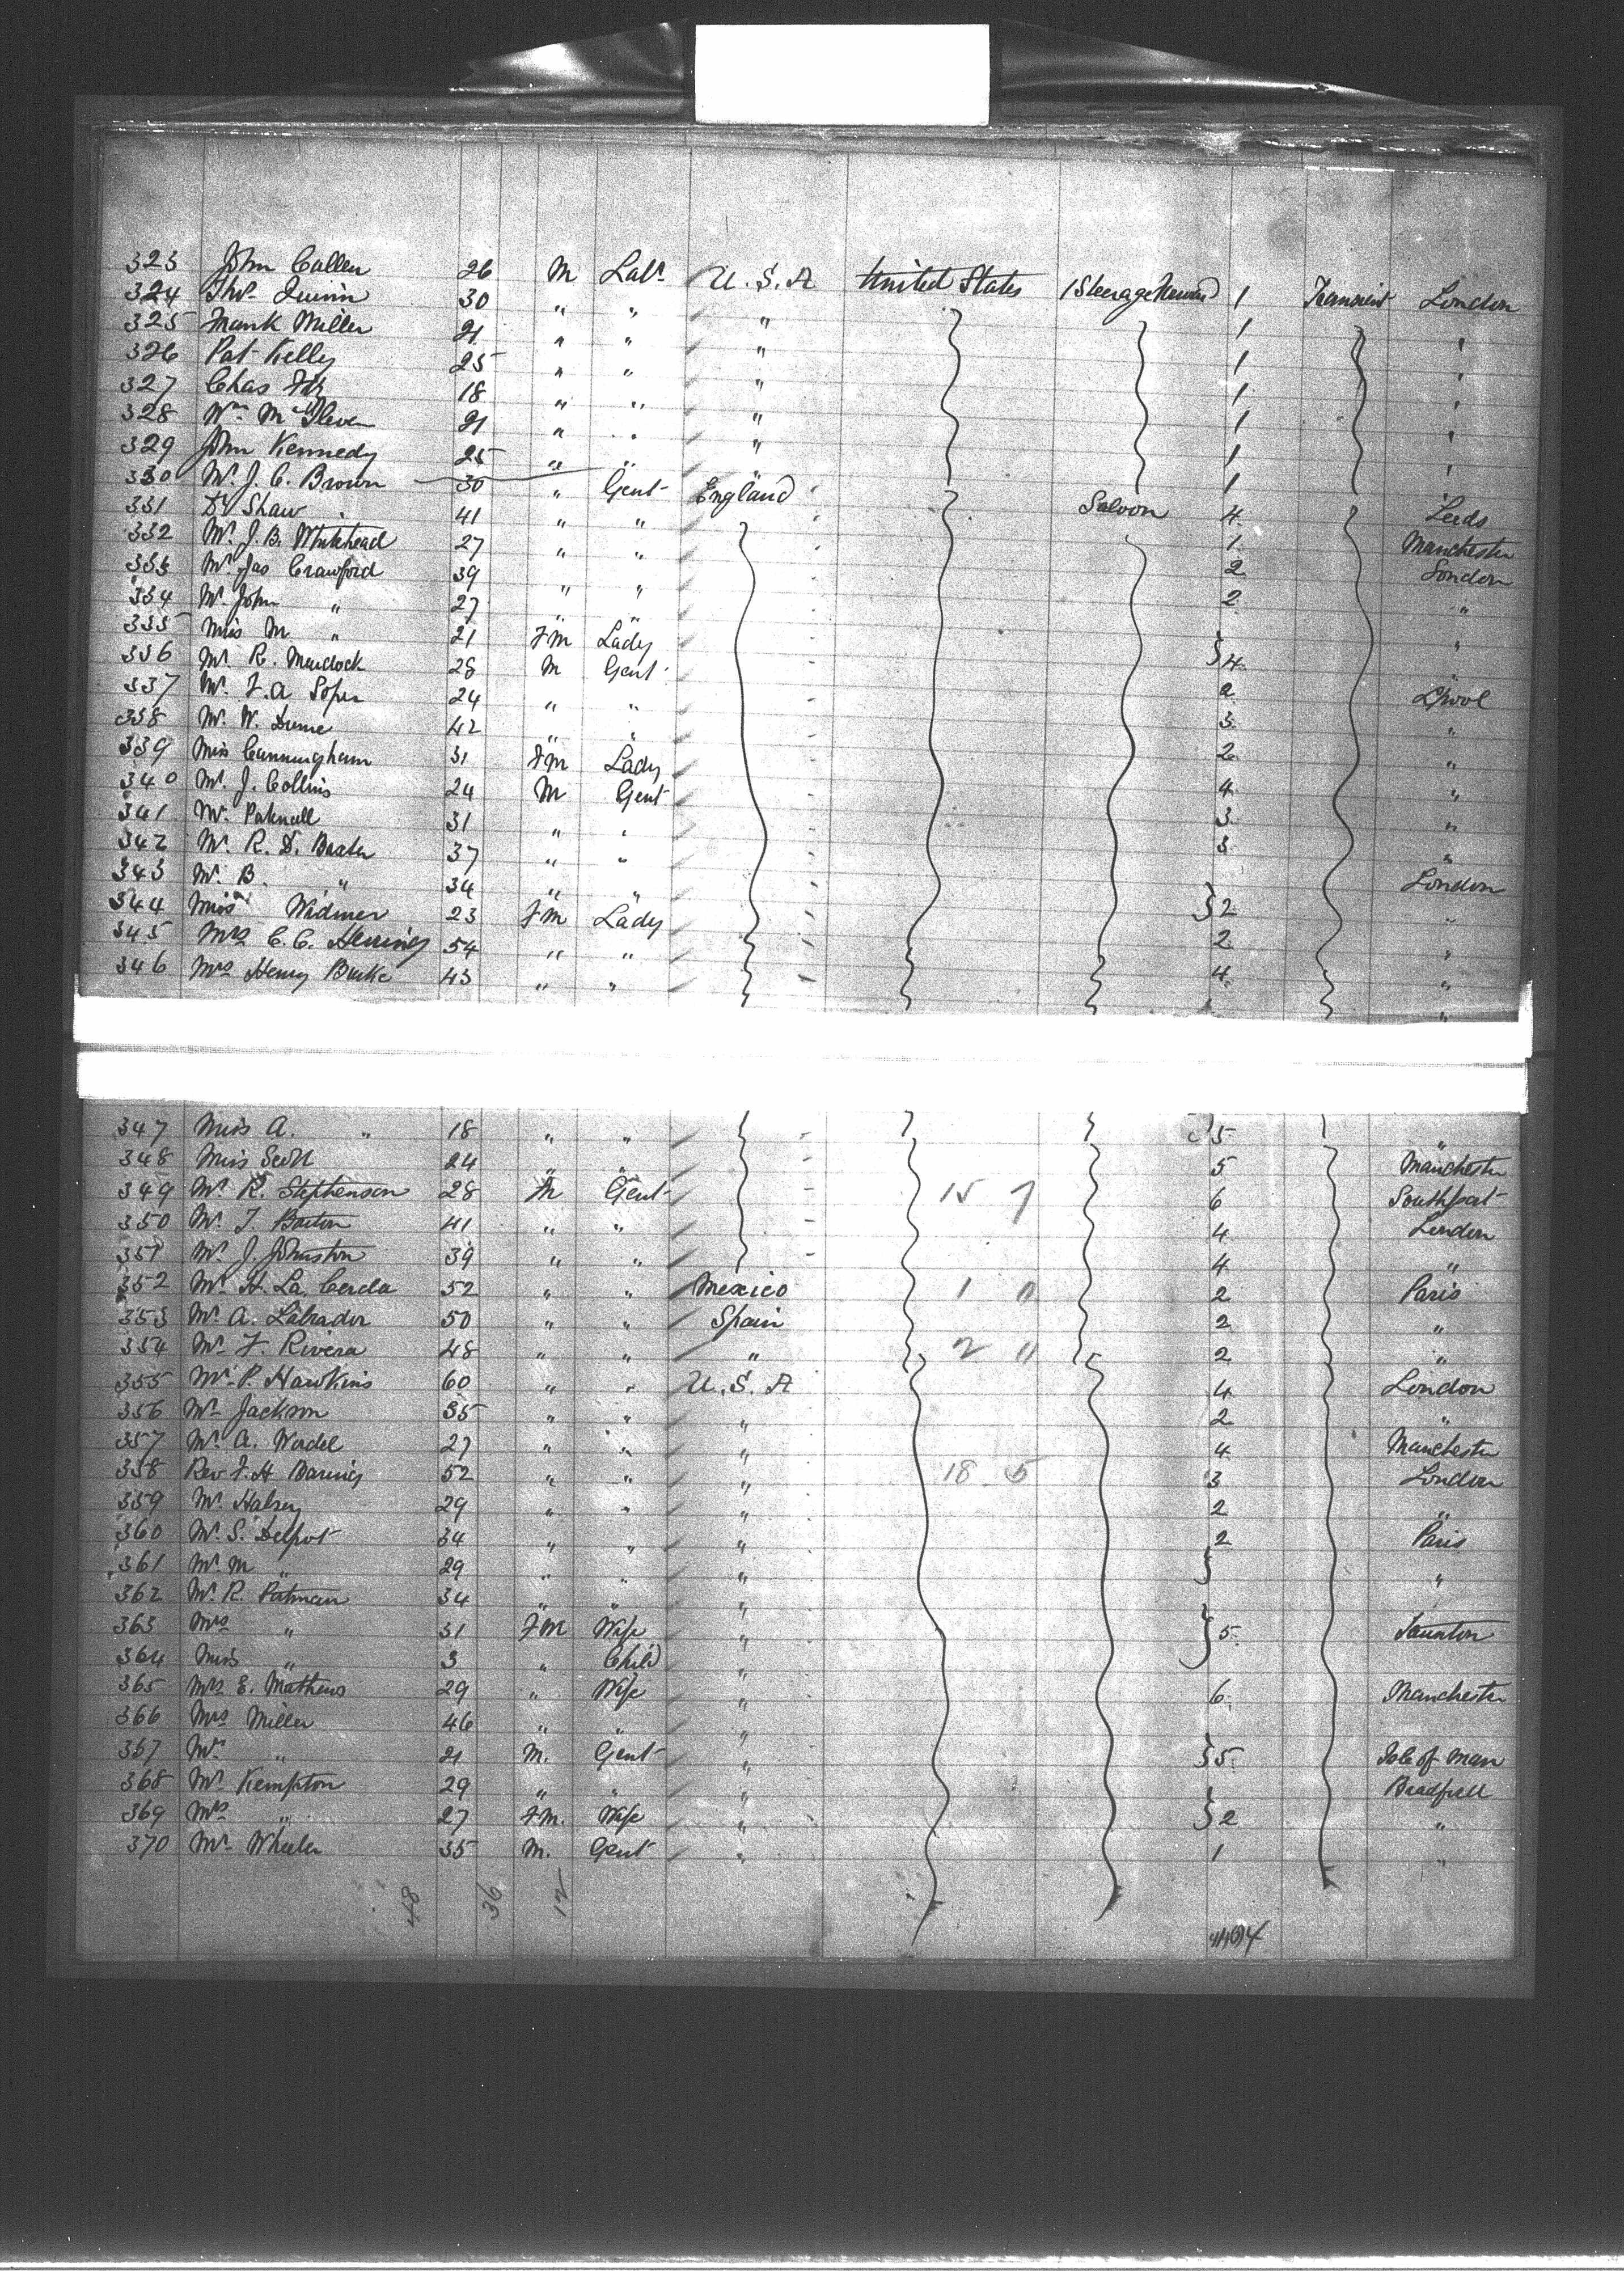 323 John Cullen 26 M Labr U.S.A United States 1 Transient London
324 Thos Quinn 30 " " " 1 "
325 Frank Miller 21 " " " 1 "
326 Pat Kelly 25 " " " 1 "
327 Chas 18 " " " 1 "
328 Wm 21 " " " 1 "
329 John Kennedy 25 " " " 1 "
330 Mr J. C. Brown 30 " Gent England Saloon 4 Leeds
331 Dr Shaw 41 " " 1 Manchester
332 Mr J. B. Whitehead 27 " " 2 London
333 Mr Jas Crawford 39 " " 2 "
334 Mr John " 27 " "
335 Miss M " 21 Fm Lady } 4 "
336 Mr R. Murdock 28 M Gent 2 L'pool
337 Mr F. A 24 " " 3 "
338 Mr W. 42 " " 2 "
339 Miss Cunningham 31 Fm Lady 4 "
340 Mr J. Collins 24 M Gent 3 "
341 Mr 31 " " 3 "
342 Mr R. D. Baxter 37 " " London
343 Mr B. " 34 " " } 2 "
344 Miss Widmer 23 Fm Lady 2 "
345 Mrs C. C. 54 " " 4 "
346 Mrs Henry Burke 43 " " "
347 Miss A. " 18 " " 5 "
348 Miss Scott 24 " " 5 Manchester
349 Mr R. Stephenson 28 M Gent 15 7 6 Southport
350 Mr T. Barton 41 " " 4 London
351 Mr J. Johnston 39 " " 4 "
352 Mr H. La Cerda 52 " " Mexico 1 0 2 Paris
353 Mr A. Labrador 50 " " Spain 2 "
354 Mr F. Rivera 48 " " " 2 " 2 "
355 Mr P. Hawkins 60 " " U.S.A 4 London
356 Mr Jackson 35 " " " 2 "
357 Mr A. Wadel 27 " " " 4 Manchester
358 Rev F. H Baring 52 " " " 18 5 3 London
359 Mr Halsey 29 " " " 2 "
360 Mr S. Delpot 34 " " " 2 Paris
361 Mr M " 29 " " " } "
362 Mr R. Patman 34 " " "
363 Mrs " 31 Fm Wife " } 5 Taunton
364 Miss " 3 " Child "
365 Mrs E. Mathews 29 " Wife " 6 Manchester
366 Mrs Miller 46 " " "
367 Mr " 21 M. Gent " } 5 Isle of Man
368 Mr Kempton 29 " " "
369 Mrs " 27 Fm. Wife " } 2 "
370 Mr Wheeler 35 M. Gent " 1 "
48 36 12